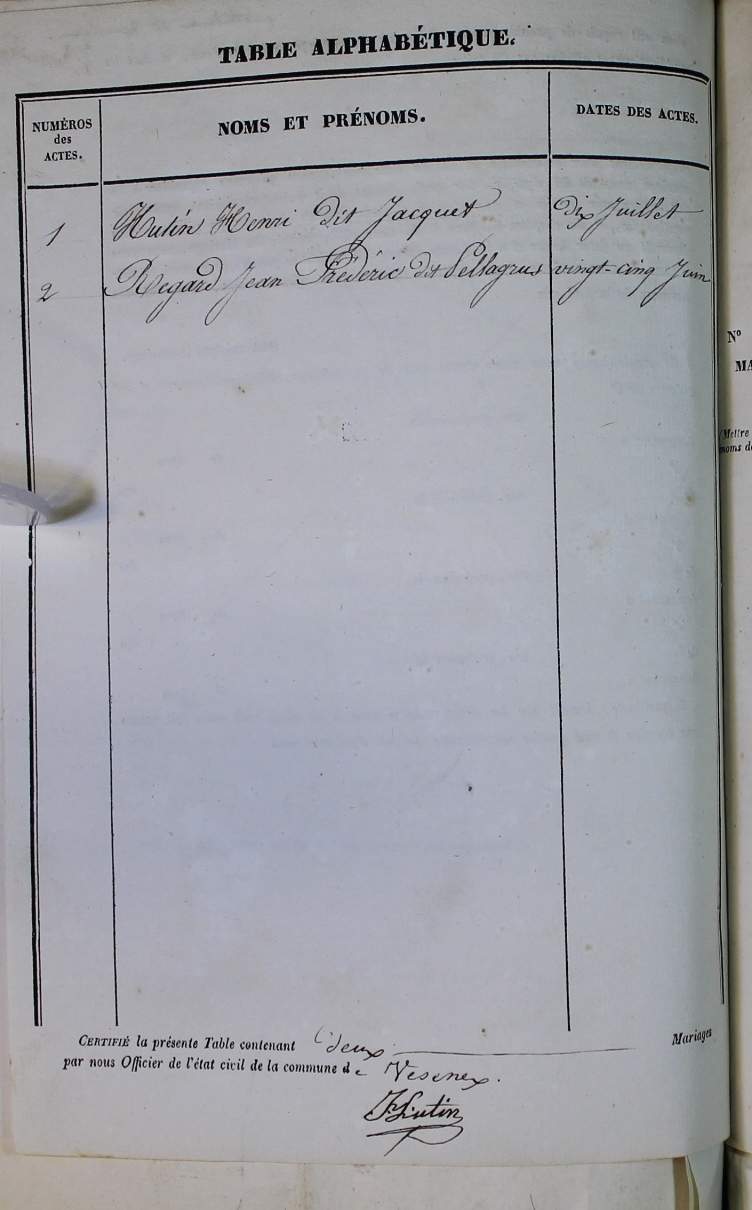 TABLE ALPHABÉTIQUE.
NUMÉROS
des
ACTES.
NOMS ET PRÉNOMS.
DATES DES ACTES.
1 Hutin Henri dit Jacquet dix Juillet
2 Regard Jean Frédéric dit Pellagrus vingt-cinq Juin
CERTIFIÉ la présente Table contenant deux Mariages
par nous Officier de l'état civil de la commune de Vesenex.
Hutin
N°
MA
(Mettre
noms d